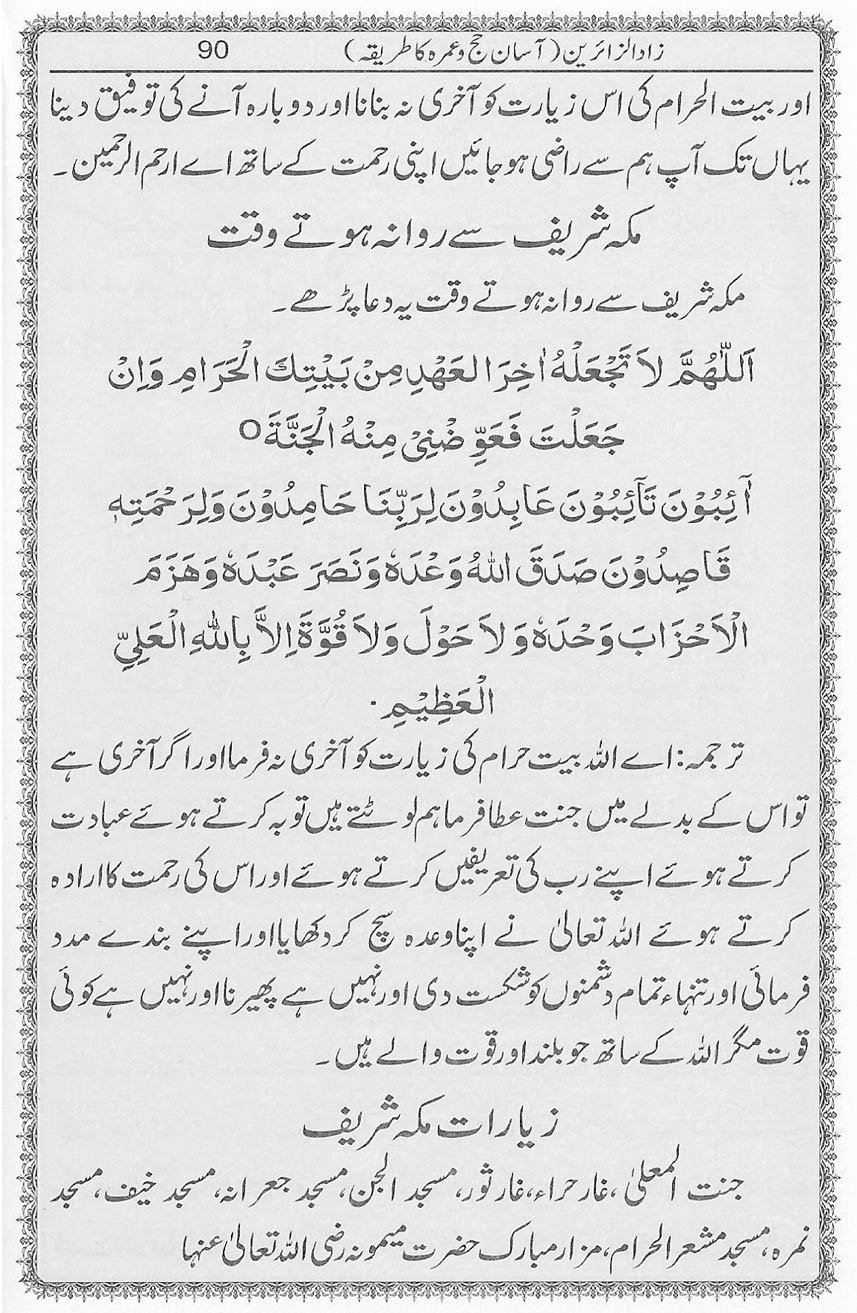 زاد الزائرین (آسان حج و عمرہ کا طریقہ) 90
اور بیت الحرام کی اس زیارت کو آخری نہ بنانا اور دوبارہ آنے کی توفیق دینا
یہاں تک آپ ہم سے راضی ہو جائیں اپنی رحمت کے ساتھ اے ارحم الرحمین۔
مکہ شریف سے روانہ ہوتے وقت
مکہ شریف سے روانہ ہوتے وقت یہ دعا پڑھے۔
اَللّٰهُمَّ لَا تَجْعَلْهُ اٰخِرَ الْعَهْدِ مِنْ بَيْتِكَ الْحَرَامِ وَاِنْ
جَعَلْتَ فَعَوِّ ضْنِيْ مِنْهُ الْجَنَّةَ ○
آئِبُوْنَ تَآئِبُوْنَ عَابِدُوْنَ لِرَبِّنَا حَامِدُوْنَ وَلِرَحْمَتِهٖ
قَاصِدُوْنَ صَدَقَ اللّٰهُ وَعْدَهٗ وَنَصَرَ عَبْدَهٗ وَهَزَمَ
الْاَحْزَابَ وَحْدَهٗ وَلَا حَوْلَ وَلَا قُوَّةَ اِلَّا بِاللّٰهِ الْعَلِيِّ
الْعَظِيْمِ۔
ترجمہ: اے اللہ بیت حرام کی زیارت کو آخری نہ فرما اور اگر آخری ہے
تو اس کے بدلے میں جنت عطا فرما ہم لوٹتے ہیں توبہ کرتے ہوئے عبادت
کرتے ہوئے اپنے رب کی تعریفیں کرتے ہوئے اور اس کی رحمت کا ارادہ
کرتے ہوئے اللہ تعالیٰ نے اپنا وعدہ سچ کر دکھایا اور اپنے بندے مدد
فرمائی اور تنہاء تمام دشمنوں کو شکست دی اور نہیں ہے پھیرنا اور نہیں ہے کوئی
قوت مگر اللہ کے ساتھ جو بلند اور قوت والے ہیں۔
زیارات مکہ شریف
جنت المعلیٰ، غار حراء، غار ثور، مسجد الجن، مسجد جعرانہ، مسجد خیف، مسجد
نمرہ، مسجد مشعر الحرام، مزار مبارک حضرت میمونہ رضی اللہ تعالیٰ عنہا